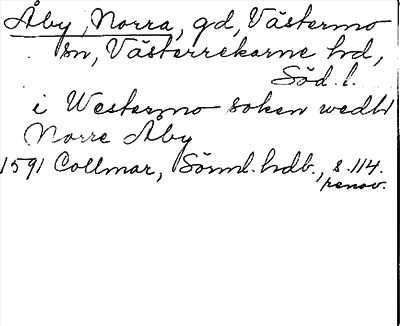 Åby, Norra, gd, Västermo
sn, Västerrekarne hd,
Söd. l.
i Westermo soken wedh
Norre Åby
1591 Collmar, Sörml. hdb., s. 114.
renov.